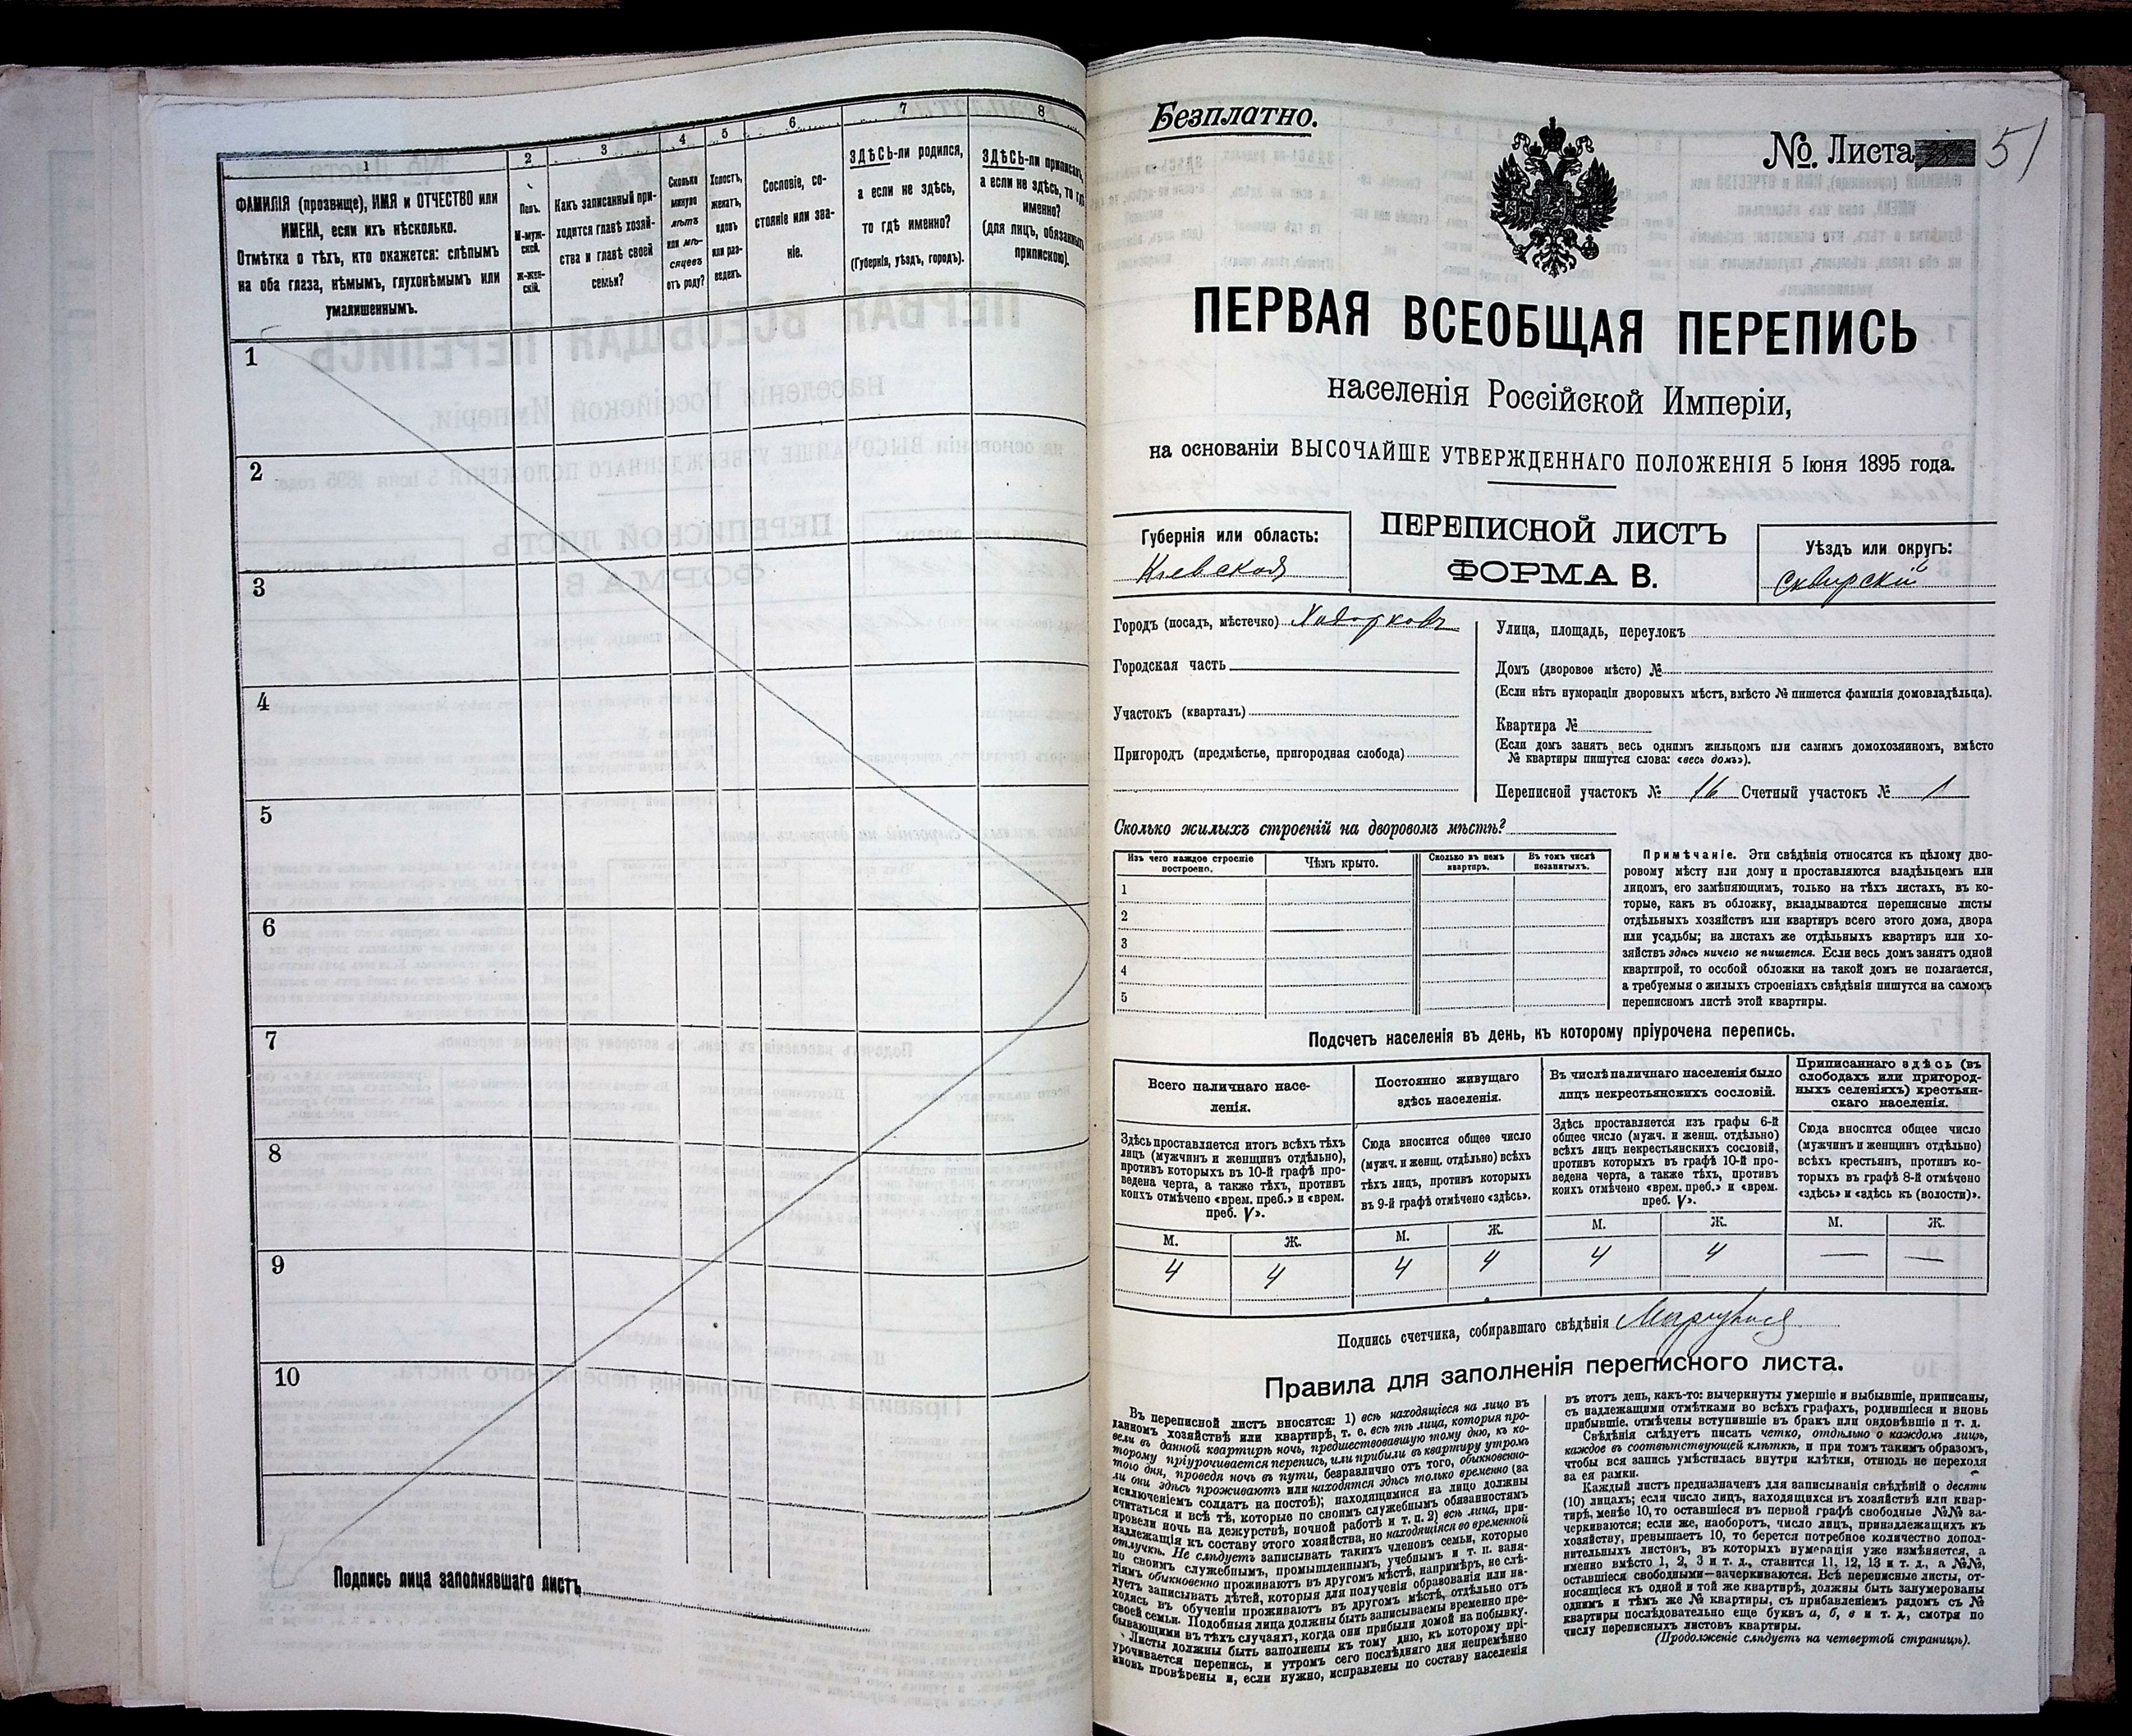 1
ФАМИЛІЯ (прозвище), ИМЯ и ОТЧЕСТВО или
ИМЕНА, если ихъ нѣсколько.
Отмѣтка о тѣхъ, кто окажется: слѣпымъ
на оба глаза, нѣмымъ, глухонѣмымъ или
умалишеннымъ.
2
Полъ.
М-муж-
ской.
Ж-жен-
скій.
3
Какъ записанный при-
ходится главѣ хозяй-
ства и главѣ своей
семьи?
4
Сколько
минуло
лѣтъ
или мѣ-
сяцевъ
отъ роду?
5
Холостъ,
женатъ,
вдовъ
или раз-
веденъ.
6
Сословіе, со-
стояніе или зва-
ніе.
7
ЗДѢСЬ-ли родился,
а если не здѣсь,
то гдѣ именно?
(Губернія, уѣздъ, городъ).
8
ЗДѢСЬ-ли приписанъ,
а если не здѣсь, то гдѣ
именно?
(для лицъ, обязанныхъ
припискою).
1
2
3
4
5
6
7
8
9
10
Подпись лица заполнявшаго листъ
Безплатно.
№ Листа 51
ПЕРВАЯ ВСЕОБЩАЯ ПЕРЕПИСЬ
населенія Россійской Имперіи,
на основаніи ВЫСОЧАЙШЕ УТВЕРЖДЕННАГО ПОЛОЖЕНІЯ 5 Іюня 1895 года.
Губернія или область:
Кіевская
ПЕРЕПИСНОЙ ЛИСТЪ
ФОРМА В.
Уѣздъ или округъ:
Сквирскій
Городъ (посадъ, мѣстечко) Ходорковъ
Городская часть
Участокъ (кварталъ)
Пригородъ (предмѣстье, пригородная слобода)
Улица, площадь, переулокъ
Домъ (дворовое мѣсто) №
(Если нѣтъ нумораціи дворовыхъ мѣстъ, вмѣсто № пишется фамилія домовладѣльца).
Квартира №
(Если домъ занятъ весь однимъ жильцомъ или самимъ домохозяиномъ, вмѣсто
№ квартиры пишутся слова: «весь домъ»).
Переписной участокъ № 16 Счетный участокъ № 1
Сколько жилыхъ строеній на дворовомъ мѣстѣ?
Изъ чего каждое строеніе
построено.
Чѣмъ крыто.
Сколько въ немъ
квартиръ.
Въ томъ числѣ
незанятыхъ.
1
2
3
4
5
Примѣчаніе. Эти свѣдѣнія относятся къ цѣлому дво-
ровому мѣсту или дому и проставляются владѣльцемъ или
лицомъ, его замѣняющимъ, только на тѣхъ листахъ, въ ко-
торые, какъ въ обложку, вкладываются переписные листы
отдѣльныхъ хозяйствъ или квартиръ всего этого дома, двора
или усадьбы; на листахъ же отдѣльныхъ квартиръ или хо-
зяйствъ здѣсь ничего не пишется. Если весь домъ занятъ одной
квартирой, то особой обложки на такой домъ не полагается,
а требуемыя о жилыхъ строеніяхъ свѣдѣнія пишутся на самомъ
переписномъ листѣ этой квартиры.
Подсчетъ населенія въ день, къ которому пріурочена перепись.
Всего наличнаго насе-
ленія.
Здѣсь проставляется итогъ всѣхъ тѣхъ
лицъ (мужчинъ и женщинъ отдѣльно),
противъ которыхъ въ 10-й графѣ про-
ведена черта, а также тѣхъ, противъ
коихъ отмѣчено «врем. преб.» и «врем.
преб. V».
М. Ж.
4 4
Постоянно живущаго
здѣсь населенія.
Сюда вносится общее число
(мужч. и женщ. отдѣльно) всѣхъ
тѣхъ лицъ, противъ которыхъ
въ 9-й графѣ отмѣчено «здѣсь».
М. Ж.
4 4
Въ числѣ наличнаго населенія было
лицъ некрестьянскихъ сословій.
Здѣсь проставляется изъ графы 6-й
общее число (мужч. и женщ. отдѣльно)
всѣхъ лицъ некрестьянскихъ сословій,
противъ которыхъ въ графѣ 10-й про-
ведена черта, а также тѣхъ, противъ
коихъ отмѣчено «врем. преб.» и «врем.
преб. V».
М. Ж.
4 4
Приписаннаго здѣсь (въ
слободахъ или пригород-
ныхъ селеніяхъ) крестьян-
скаго населенія.
Сюда вносится общее число
(мужчинъ и женщинъ отдѣльно)
всѣхъ крестьянъ, противъ ко-
торыхъ въ графѣ 8-й отмѣчено
«здѣсь» и «здѣсь къ (волости)».
М. Ж.
— —
Подпись счетчика, собиравшаго свѣдѣнія
Правила для заполненія переписного листа.
Въ переписной листъ вносятся: 1) всѣ находящіеся на лицо въ
данномъ хозяйствѣ или квартирѣ, т. е. всѣ тѣ лица, которыя про-
вели въ данной квартирѣ ночь, предшествовавшую тому дню, къ ко-
торому пріурочивается перепись, или прибыли въ квартиру утромъ
того дня, проведя ночь въ пути, безразлично отъ того, обыкновенно-
ли они здѣсь проживаютъ или находятся здѣсь только временно (за
исключеніемъ солдатъ на постоѣ); находящимися на лицо должны
считаться и всѣ тѣ, которые по своимъ служебнымъ обязанностямъ
провели ночь на дежурствѣ, ночной работѣ и т. п. 2) всѣ лица, при-
надлежащія къ составу этого хозяйства, но находящіяся во временной
отлучкѣ. Не слѣдуетъ записывать такихъ членовъ семьи, которые
по своимъ служебнымъ, промышленнымъ, учебнымъ и т. п. заня-
тіямъ обыкновенно проживаютъ въ другомъ мѣстѣ, напримѣръ, не слѣ-
дуетъ записывать дѣтей, которыя для полученія образованія или на-
ходясь въ обученіи проживаютъ въ другомъ мѣстѣ, отдѣльно отъ
своей семьи. Подобныя лица должны быть записываемы временно пре-
бывающими въ тѣхъ случаяхъ, когда они прибыли домой на побывку.
Листы должны быть заполнены къ тому дню, къ которому прі-
урочивается перепись, и утромъ сего послѣдняго дня непремѣнно
вновь провѣрены и, если нужно, исправлены по составу населенія
въ этотъ день, какъ-то: вычеркнуты умершіе и выбывшіе, приписаны,
съ надлежащими отмѣтками во всѣхъ графахъ, родившіеся и вновь
прибывшіе, отмѣчены вступившіе въ бракъ или овдовѣвшіе и т. д.
Свѣдѣнія слѣдуетъ писать четко, отдѣльно о каждомъ лицѣ,
каждое въ соотвѣтствующей клѣткѣ, и при томъ такимъ образомъ,
чтобы вся запись умѣстилась внутри клѣтки, отнюдь не переходя
за ея рамки.
Каждый листъ предназначенъ для записыванія свѣдѣній о десяти
(10) лицахъ; если число лицъ, находящихся въ хозяйствѣ или квар-
тирѣ, менѣе 10, то оставшіеся въ первой графѣ свободные №№ за-
черкиваются; если же, наоборотъ, число лицъ, принадлежащихъ къ
хозяйству, превышаетъ 10, то берется потребное количество допол-
нительныхъ листовъ, въ которыхъ нумерація уже измѣняется, а
именно вмѣсто 1, 2, 3 и т. д., ставится 11, 12, 13 и т. д., а №№,
оставшіеся свободными—зачеркиваются. Всѣ переписные листы, от-
носящіеся къ одной и той же квартирѣ, должны быть занумерованы
однимъ и тѣмъ же № квартиры, съ прибавленіемъ рядомъ съ №
квартиры послѣдовательно еще буквъ а, б, в и т. д., смотря по
числу переписныхъ листовъ квартиры.
(Продолженіе слѣдуетъ на четвертой страницѣ).